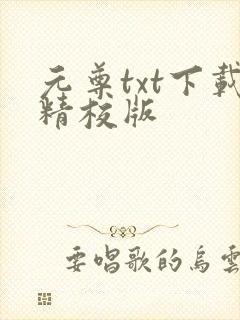 元尊txt下載
精校版
要唱歌的烏雲